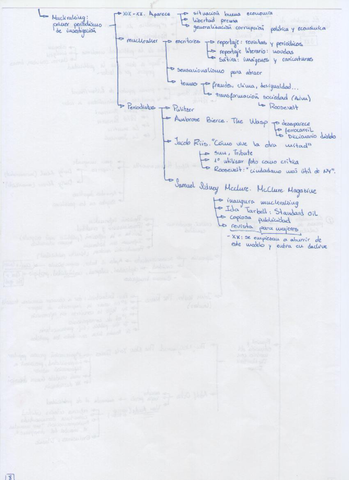 Muckraking:
primer periodismo
de investigación
XIX-XX. Aparece
situación buena economica
libertad prensa
generalización corrupción política y económica
muckraker
escritores
reportaje: revistas y periódicos
reportaje literario: novelas
sátira: imágenes y caricaturas
sensacionalismo para atraer
temas
fraudes, clima, desigualdad...
transformación sociedad
Roosevelt
Periodistas
Pulitzer
Ambrose Bierce: The Wasp
desaparece
ferrocarril
Diccionario diablo
Jacob Riis: "Como vive la otra mitad"
Sun, Tribute
1º utilizar foto como crítica
Roosevelt: "ciudadano más útil de NY".
Samuel Sidney McClure: McClure Magazine
inaugura muckraking
Ida Tarbell: Standard Oil
copiosa publicidad
revista para mujeres
- XX: se empiezan a aburrir de
este modelo y entra en declive